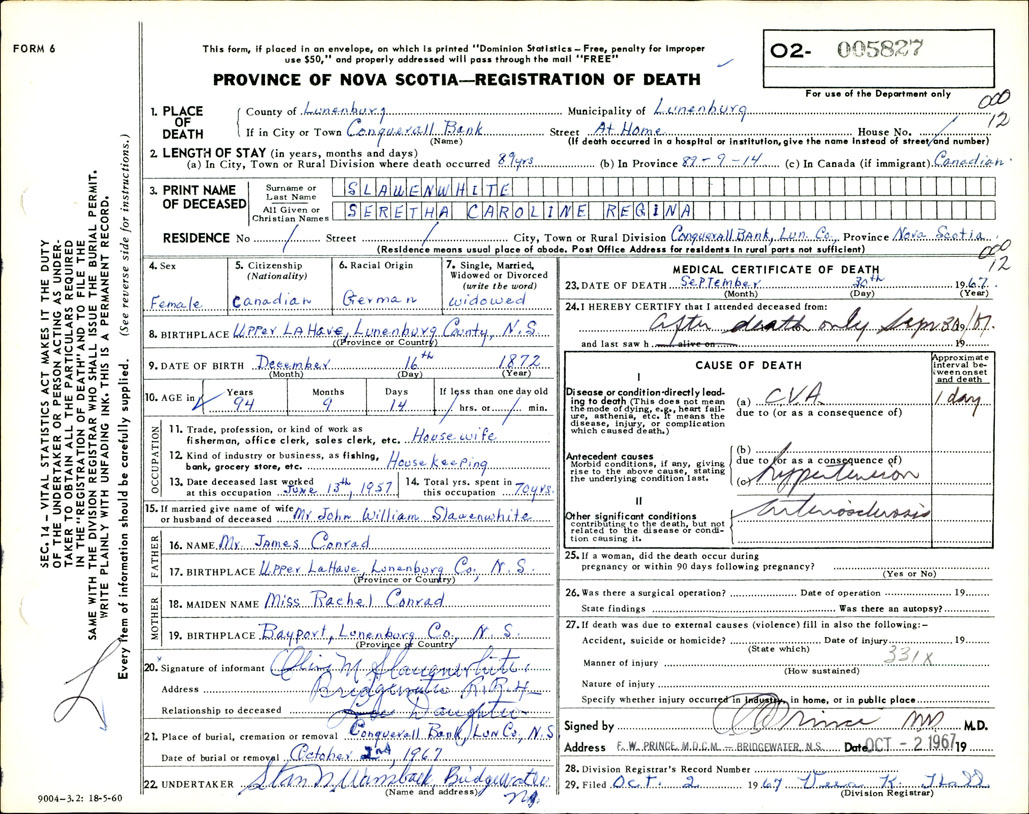 FORM 6
This form, if placed in an envelope, on which is printed "Dominion Statistics—Free, penalty for improper
use $50," and properly addressed will pass through the mail "FREE"
PROVINCE OF NOVA SCOTIA—REGISTRATION OF DEATH
O2- 005827
For use of the Department only
000
12
1. PLACE OF DEATH
County of Lunenburg Municipality of Lunenburg
If in City or Town Conquerall Bank Street At Home House No. /
(Name) (If death occurred in a hospital or institution, give the name instead of street and number)
2. LENGTH OF STAY (in years, months and days)
(a) In City, Town or Rural Division where death occurred 89 yrs (b) In Province 89-9-14 (c) In Canada (if immigrant) Canadian
3. PRINT NAME OF DECEASED
Surname or Last Name SLAUENWHITE
All Given or Christian Names SERETHA CAROLINE REGINA
RESIDENCE No / Street / City, Town or Rural Division Conquerall Bank, Lun. Co., Province Nova Scotia
(Residence means usual place of abode. Post Office Address for residents in rural parts not sufficient)
000
12
4. Sex Female
5. Citizenship (Nationality) Canadian
6. Racial Origin German
7. Single, Married, Widowed or Divorced (write the word) widowed
8. BIRTHPLACE Upper LaHave, Lunenburg County, N.S
(Province or Country)
9. DATE OF BIRTH December 16th 1872
(Month) (Day) (Year)
10. AGE in Years 94 Months 9 Days 14 If less than one day old / hrs. or / min.
OCCUPATION
11. Trade, profession, or kind of work as
fisherman, office clerk, sales clerk, etc. House wife
12. Kind of industry or business, as fishing,
bank, grocery store, etc. House keeping
13. Date deceased last worked
at this occupation June 13th, 1957
14. Total yrs. spent in
this occupation 70 yrs.
15. If married give name of wife
or husband of deceased Mr John William Slauenwhite
FATHER
16. NAME Mr. James Conrad
17. BIRTHPLACE Upper LaHave, Lunenburg Co, N.S.
(Province or Country)
MOTHER
18. MAIDEN NAME Miss Rachel Conrad
19. BIRTHPLACE Bayport, Lunenburg Co., N.S.
(Province or Country)
20. Signature of informant Olive M Slauenwhite
Address Bridgewater R.R.4
Relationship to deceased Daughter
21. Place of burial, cremation or removal Conquerall Bank, Lun Co, N.S
Date of burial or removal October 2nd, 1967
22. UNDERTAKER Bridgewater
N.S.
(Name and address)
MEDICAL CERTIFICATE OF DEATH
23. DATE OF DEATH September 30th 1967
(Month) (Day) (Year)
24. I HEREBY CERTIFY that I attended deceased from:
after death only Sept 30 19/67.
and last saw h alive on 19
CAUSE OF DEATH
Approximate interval between onset and death
I
Disease or condition directly leading to death (This does not mean the mode of dying, e.g., heart failure, asthenia, etc. It means the disease, injury, or complication which caused death.)
(a) C.V.A 1 day
due to (or as a consequence of)
Antecedent causes
Morbid conditions, if any, giving rise to the above cause, stating the underlying condition last.
(b)
due to (or as a consequence of)
(c) hypertension
II
Other significant conditions
contributing to the death, but not related to the disease or condition causing it.
arteriosclerosis
25. If a woman, did the death occur during
pregnancy or within 90 days following pregnancy?
(Yes or No)
26. Was there a surgical operation? Date of operation 19
State findings Was there an autopsy?
27. If death was due to external causes (violence) fill in also the following:-
Accident, suicide or homicide? Date of injury 19
(State which)
331X
Manner of injury
(How sustained)
Nature of injury
Specify whether injury occurred in industry, in home, or in public place
Signed by Prince MD M.D.
Address F. W. PRINCE, M.D.C.M. — BRIDGEWATER, N.S. Date OCT - 2 1967 19
28. Division Registrar's Record Number
29. Filed Oct. 2 1967 Vera K.
(Division Registrar)
SEC. 14 – VITAL STATISTICS ACT MAKES IT THE DUTY
OF THE UNDERTAKER OR PERSON ACTING AS UNDER-
TAKER TO OBTAIN ALL THE PARTICULARS REQUIRED
IN THE "REGISTRATION OF DEATH" AND TO FILE THE
SAME WITH THE DIVISION REGISTRAR WHO SHALL ISSUE THE BURIAL PERMIT.
WRITE PLAINLY WITH UNFADING INK. THIS IS A PERMANENT RECORD.
Every item of information should be carefully supplied. (See reverse side for instructions.)
9004-3.2: 18-5-60